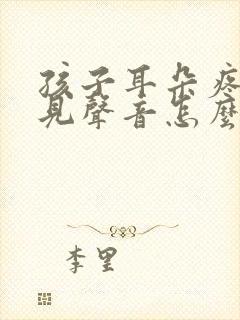 孩子耳朵疼
見聲音怎麼
李里